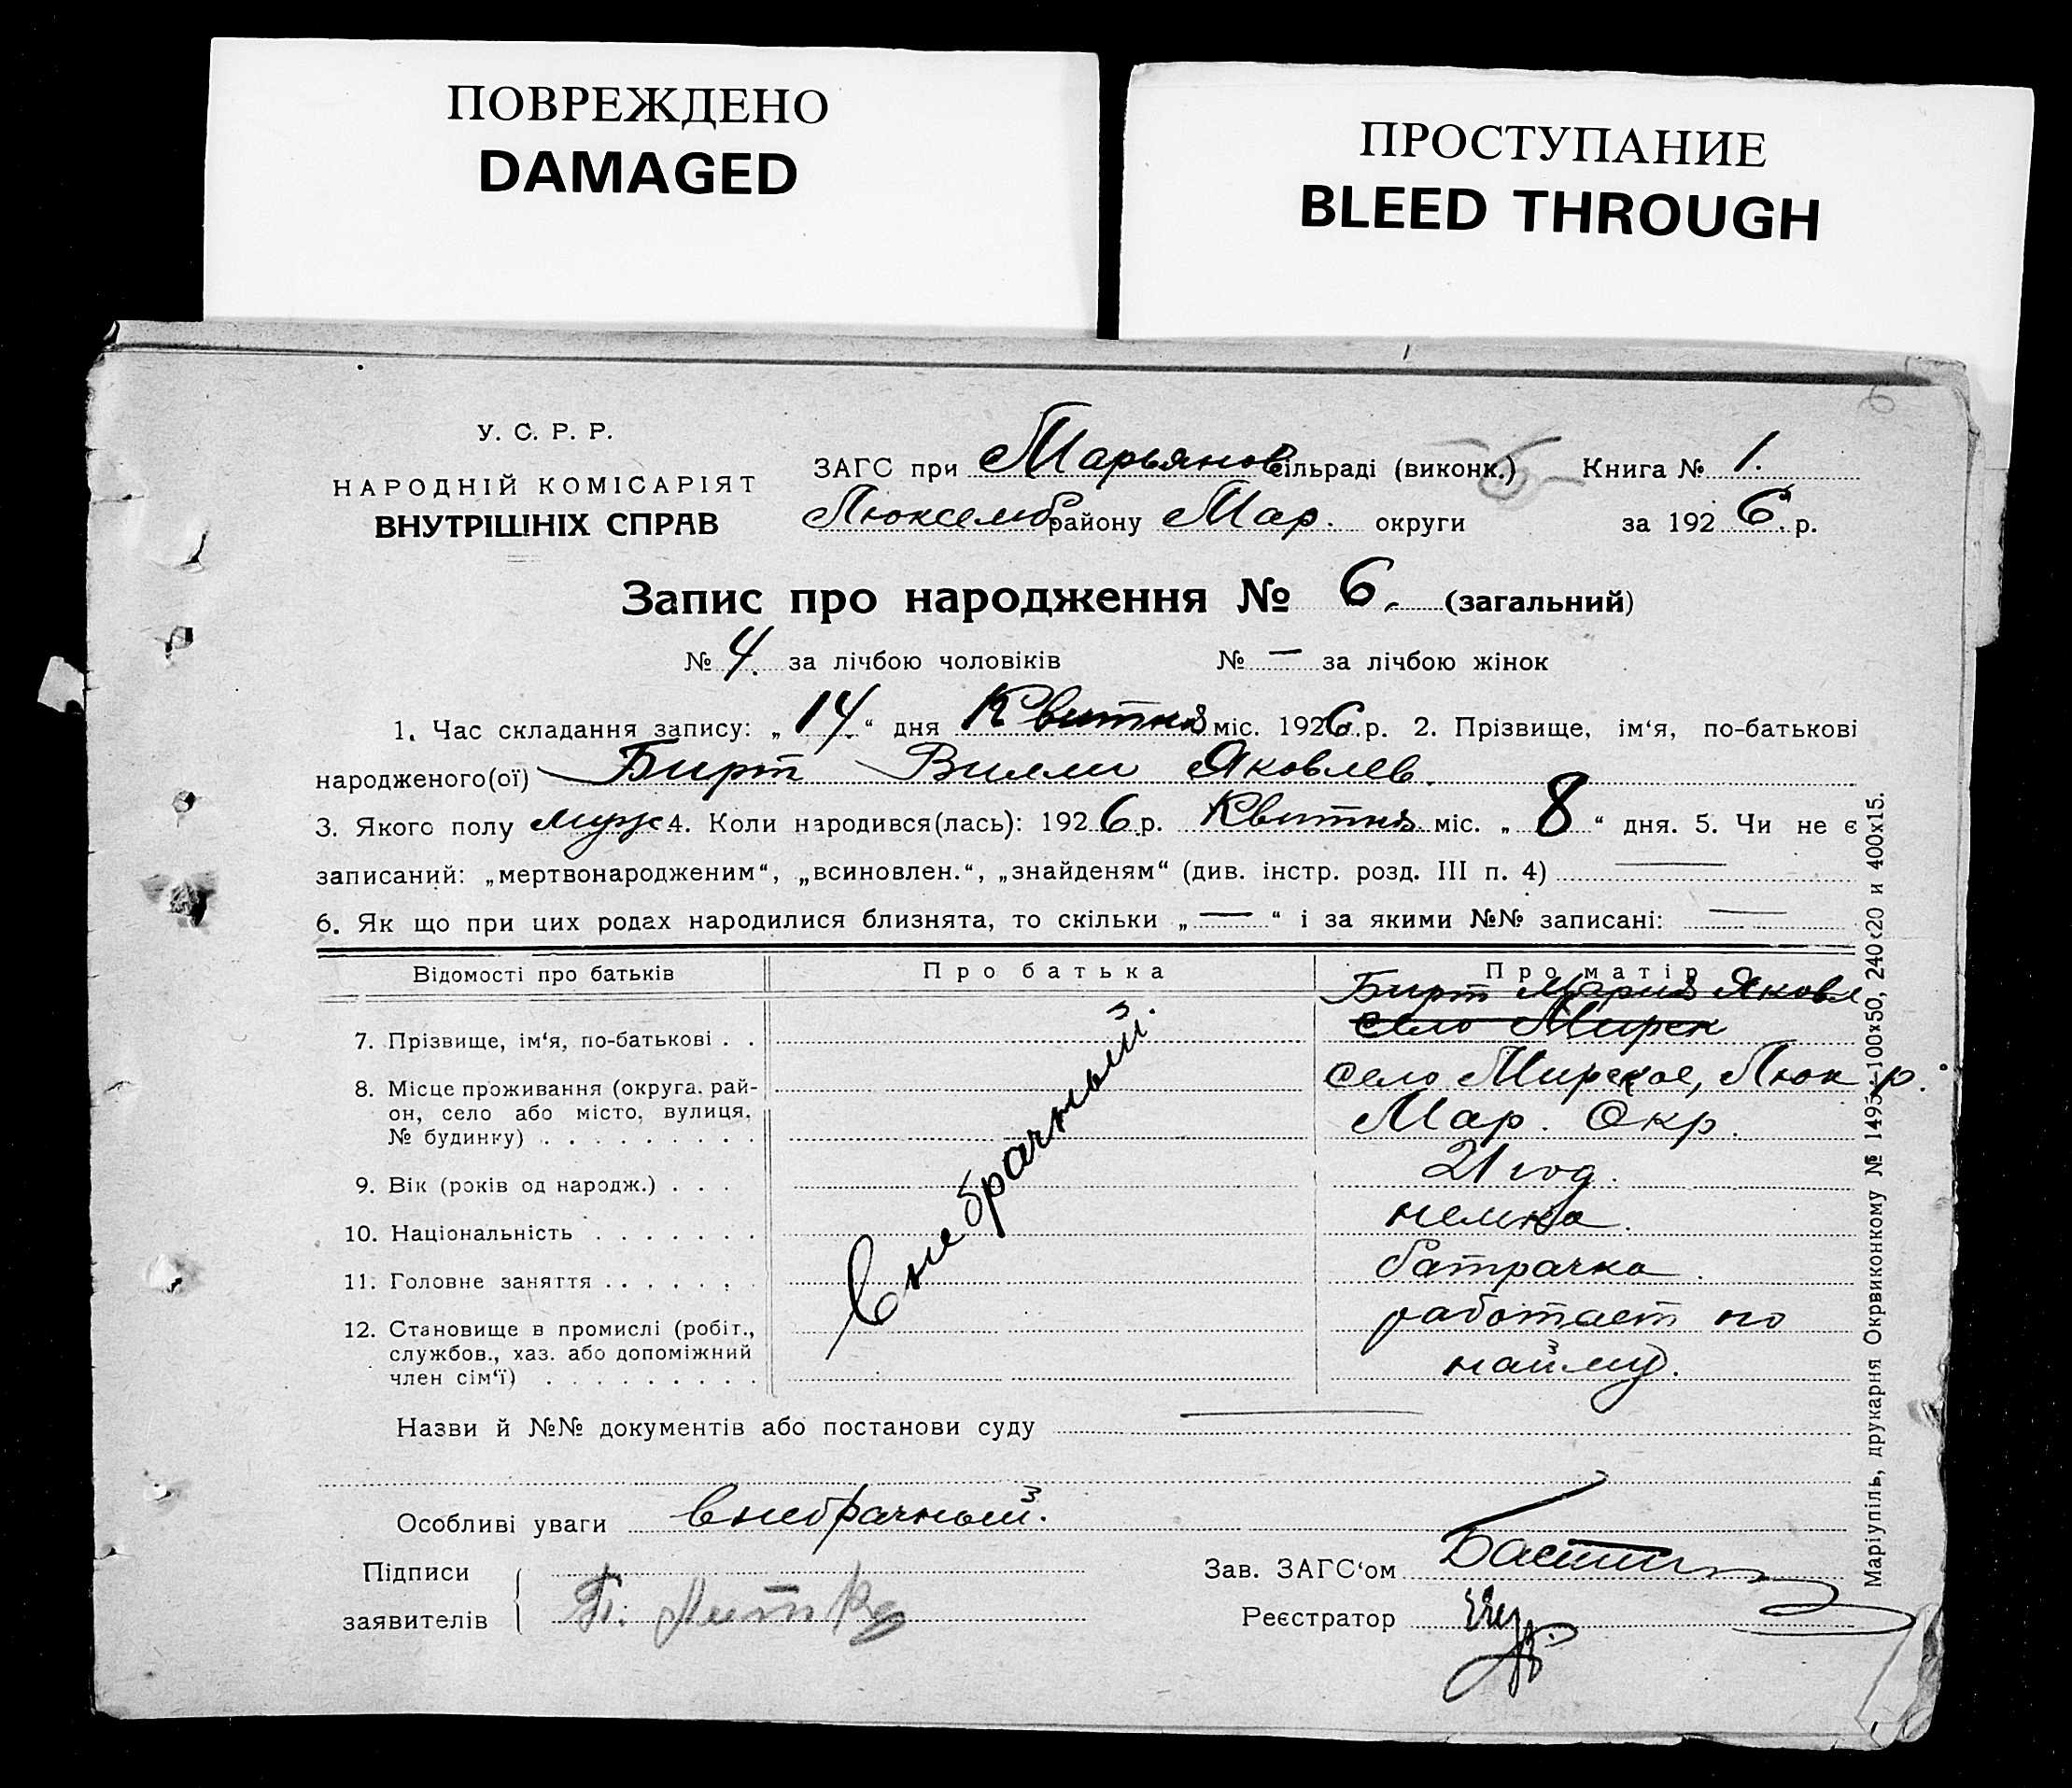 ПОВРЕЖДЕНО
DAMAGED
ПРОСТУПАНИЕ
BLEED THROUGH
У. С. Р. Р.
НАРОДНІЙ КОМІСАРІЯТ
ВНУТРІШНІХ СПРАВ
ЗАГС при Марьянов сільраді (виконк.) Книга № 1.
Люксемб району Мар. округи за 1926. р.
Запис про народження № 6. (загальний)
№ 4. за лічбою чоловіків № — за лічбою жінок
1. Час складання запису: „14“ дня Квитня міс. 1926 р. 2. Прізвище, ім‘я, по-батькові
народженого(ої) Бирт Вилли Яковлев.
3. Якого полу муж 4. Коли народився(лась): 1926 р. Квитня міс. „8“ дня. 5. Чи не є
записаний: „мертвонародженим“, „всиновлен.“, „знайденям“ (див. інстр. розд. III п. 4) —
6. Як що при цих родах народилися близнята, то скільки „—“ і за якими №№ записані: —
Відомості про батьків Про батька Про матір
7. Прізвище, ім‘я, по-батькові . . Бирт Мария Яковл
село Мирск
8. Місце проживання (округа, рай-
он, село або місто, вулиця,
№ будинку) . . . . . . . . .
село Мирское, Люк р.
Мар. Окр.
9. Вік (років од народж.) . . . 21 год.
10. Національність . . . . . . . немка.
11. Головне заняття . . . . . . батрачка.
12. Становище в промислі (робіт.,
службов., хаз. або допоміжний
член сім‘ї) . . . . . . . . .
работает по
найму.
Внебрачный.
Назви й №№ документів або постанови суду —
Особливі уваги внебрачный.
Підписи
заявителів
Зав. ЗАГС‘ом
Реєстратор
Маріупіль, друкарня Окрвиконкому № 1495—100х50, 240х20 и 400х15.